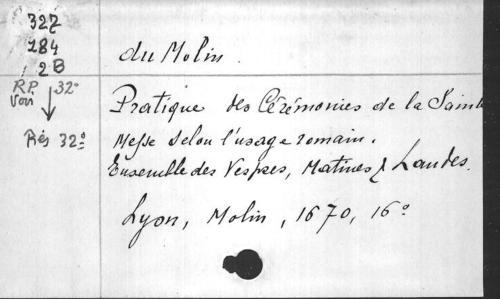 327
184
2B
R.P. 32°
voir
Rés 32°
du Molin.
Pratique des Cérémonies de la Sainte
Messe selon l'usage romain.
Ensemble des Vespres, Matines & Laudes.
Lyon, Molin, 1670, 16°